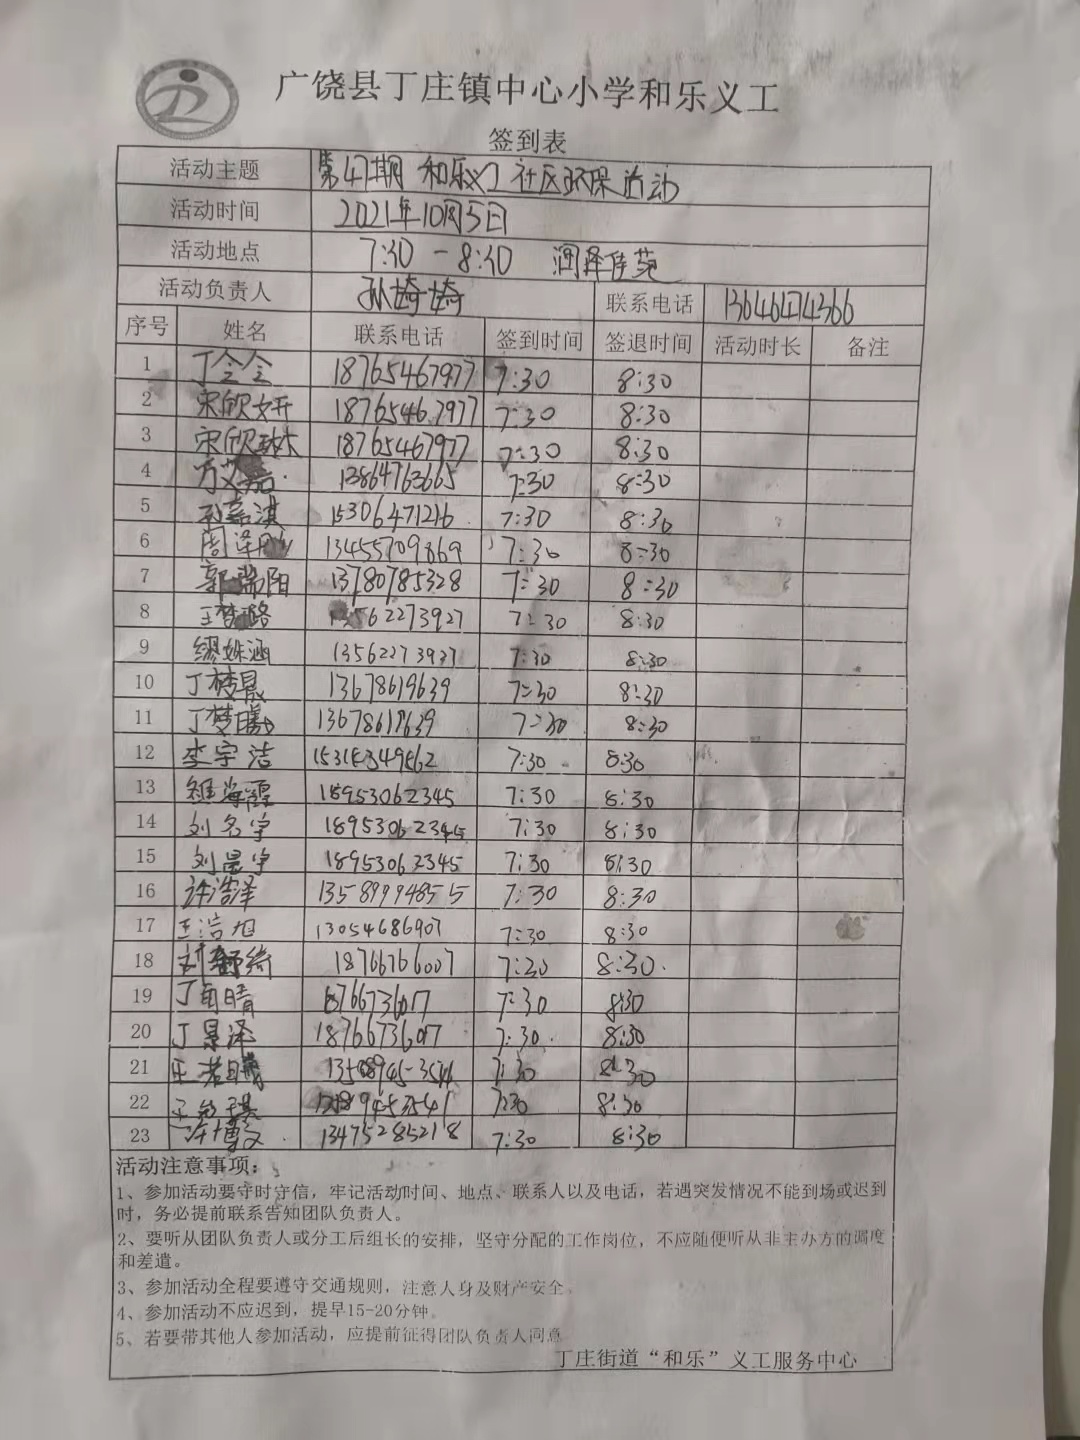 广饶县丁庄镇中心小学和乐义工
签到表
活动主题 第47期 和乐义工 社区环保活动
活动时间 2021年10月5日
活动地点 7:30-8:30 润泽佳苑
活动负责人 孙婷婷 联系电话 13646474366
序号 姓名 联系电话 签到时间 签退时间 活动时长 备注
1 丁全全 18765467977 7:30 8:30
2 宋欣妍 18765467977 7:30 8:30
3 宋欣琳 18765467977 7:30 8:30
4 嘉 13864763665 7:30 8:30
5 淇 15306471216 7:30 8:30
6 周泽 13455709869 7:30 8:30
7 郭瑞阳 13780785328 7:30 8:30
8 王梦璐 13562273927 7:30 8:30
9 缪姝涵 13562273927 7:30 8:30
10 丁梦晟 13678619639 7:30 8:30
11 丁梦曦 13678619639 7:30 8:30
12 李宇洁 15315349562 7:30 8:30
13 海霞 18953062345 7:30 8:30
14 刘名宇 18953062345 7:30 8:30
15 刘晨宇 18953062345 7:30 8:30
16 许浩泽 13589994855 7:30 8:30
17 王浩旭 13054686907 7:30 8:30
18 绮 18766766007 7:20 8:30.
19 丁雨晴 18766736017 7:30 8:30
20 丁景泽 18766736017 7:30. 8:30
21 王若曦 7:30 8:30
22 王 7:30 8:30
23 许博文 13475285218 7:30 8:30
活动注意事项：
1、参加活动要守时守信，牢记活动时间、地点、联系人以及电话，若遇突发情况不能到场或迟到
时，务必提前联系告知团队负责人。
2、要听从团队负责人或分工后组长的安排，坚守分配的工作岗位，不应随便听从非主办方的调度
和差遣。
3、参加活动全程要遵守交通规则，注意人身及财产安全。
4、参加活动不应迟到，提早15-20分钟。
5、若要带其他人参加活动，应提前征得团队负责人同意
丁庄街道“和乐”义工服务中心